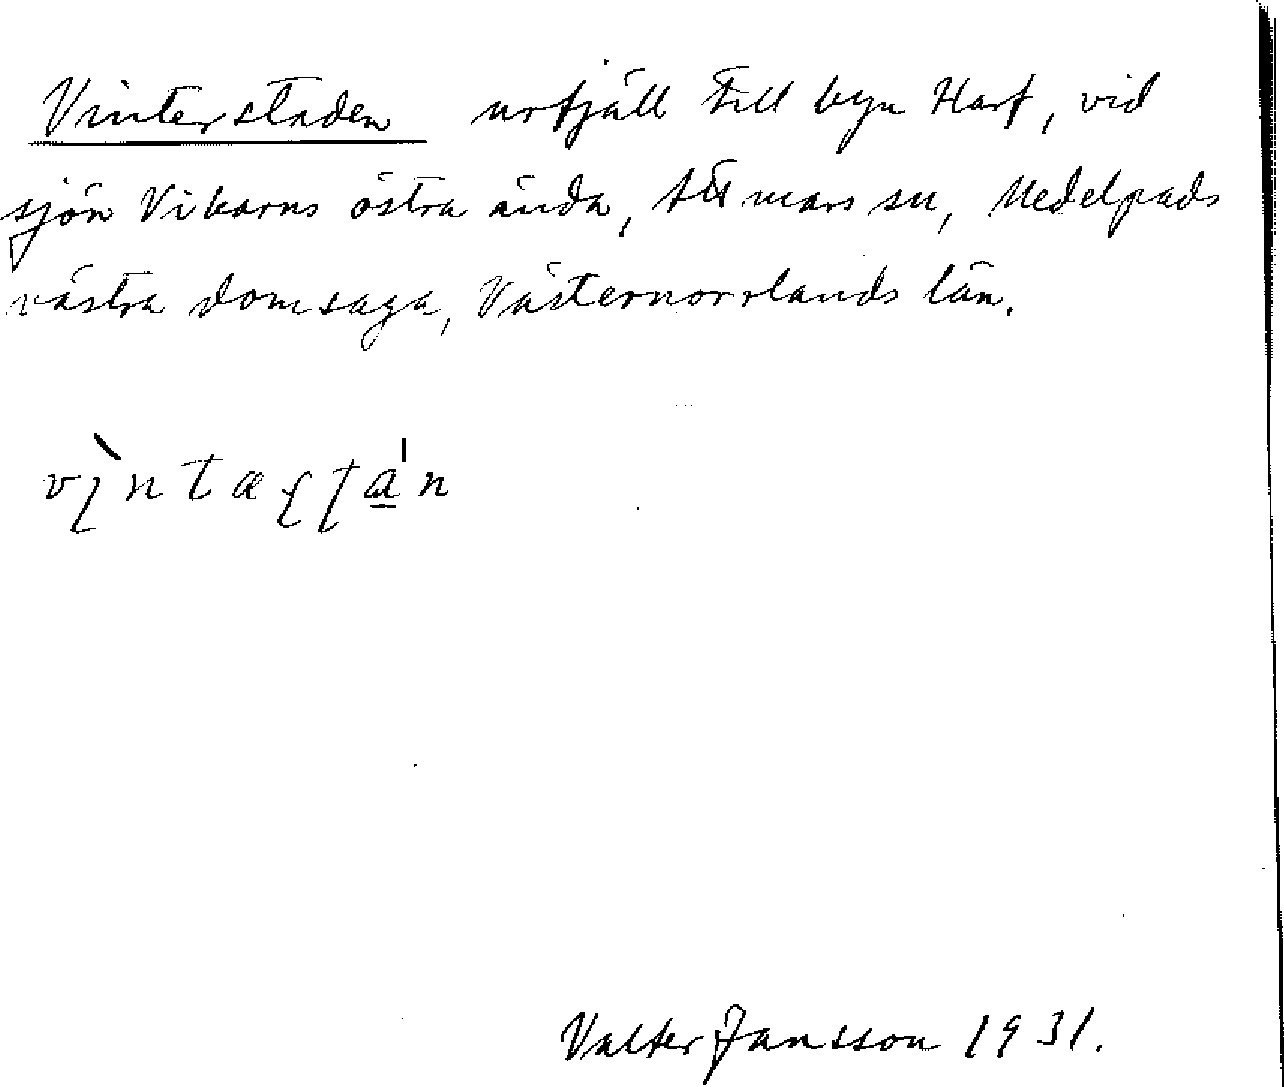 Vinterstaden urfjäll till byn Harf, vid
sjön Vikarns östra ända, Attmars sn, Medelpads
västra domsaga, Västernorrlands län.
Valter Jansson 1931.